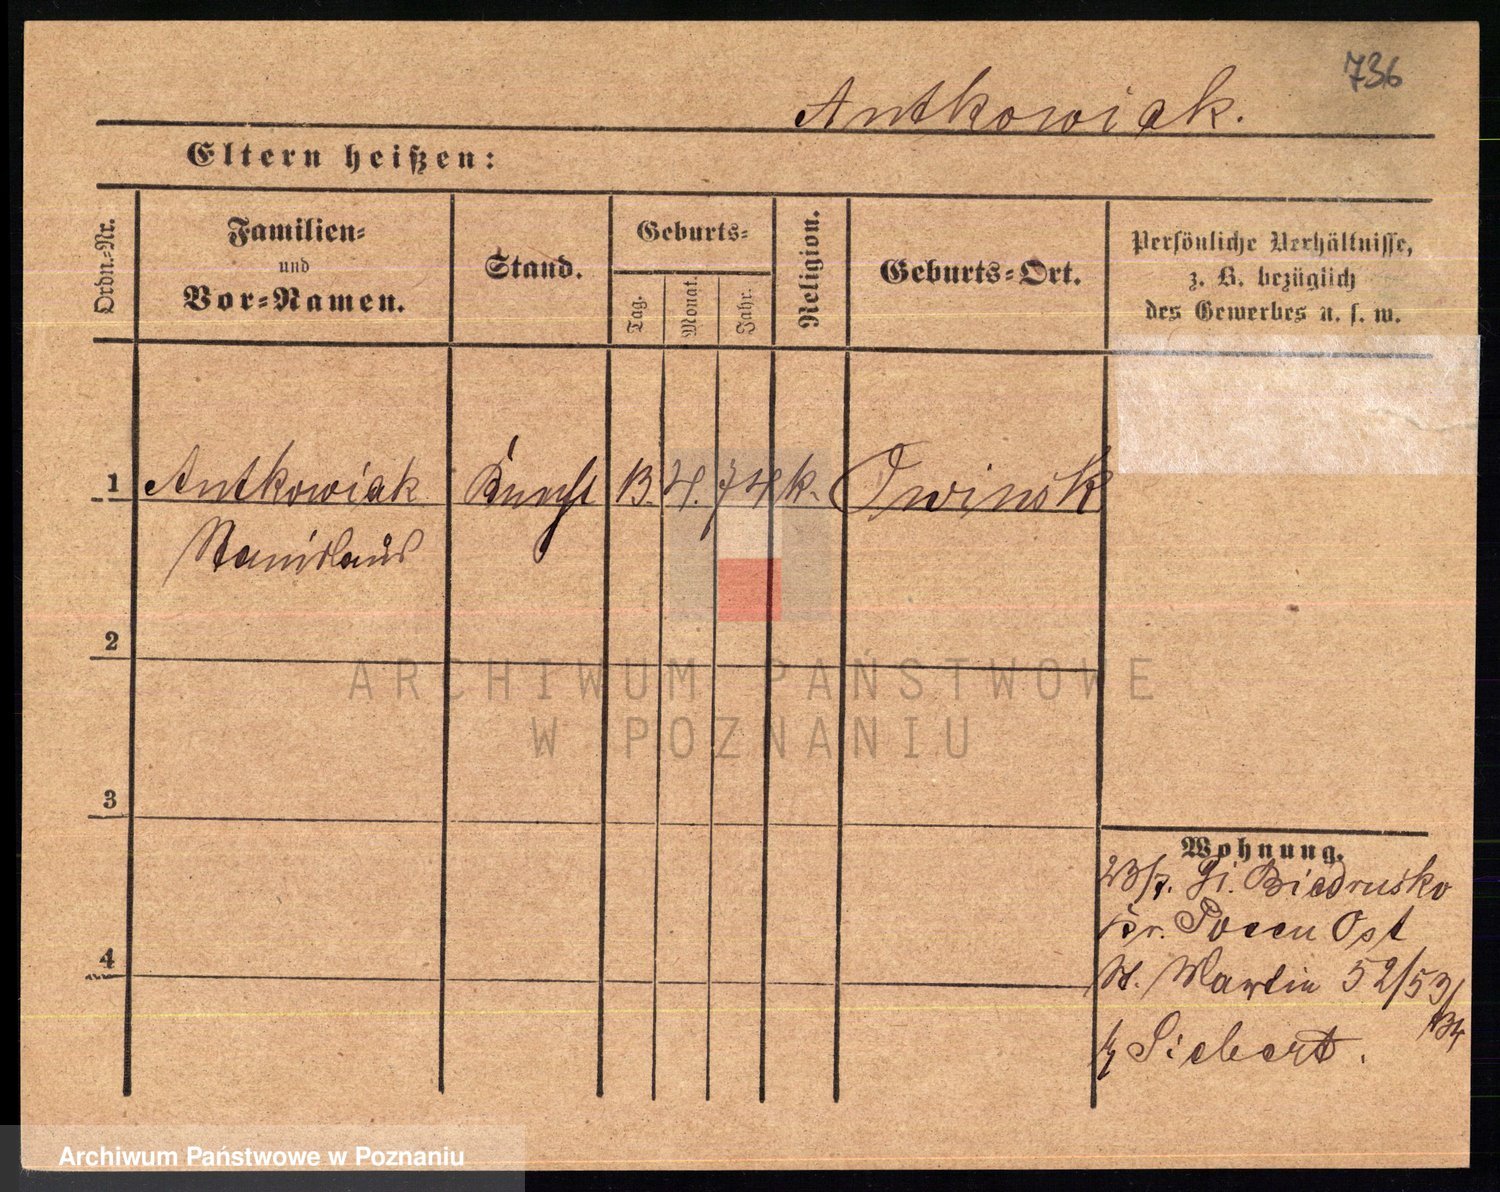 736
Antkowiak.
Eltern heißen:
Ordn.-Nr.
Familien-
und
Vor-Namen.
Stand.
Geburts-
Tag.
Monat.
Jahr.
Religion.
Geburts-Ort.
Persönliche Verhältnisse,
z. B. bezüglich
des Gewerbes u. s. w.
1 Antkowiak Knecht 13. 4. 74 k. Owinsk
Stanislaus
2
3
4
Wohnung.
23/7. Gr. Biedrusko
Kr. Posen Ost
St. Martin 52/53
Siebert.
ARCHIWUM PAŃSTWOWE
W POZNANIU
Archiwum Państwowe w Poznaniu